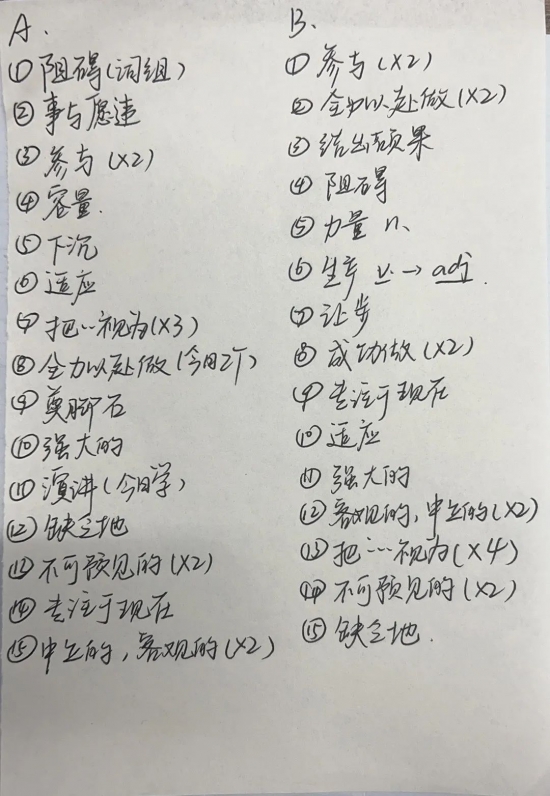 A.
①阻碍(词组)
②事与愿违
③参与(×2)
④容量.
⑤下沉
⑥适应
⑦把…视为(×3)
⑧全力以赴做(今日2个)
⑨奠脚石
⑩强大的
⑪演讲(今日学)
⑫缺乏地
⑬不可预见的(×2)
⑭专注于现在
⑮中立的,客观的(×2)
B.
①参与(×2)
②全力以赴做(×2)
③结出硕果
④阻碍
⑤力量 n.
⑥生产 v. → adj.
⑦让步
⑧成功做(×2)
⑨专注于现在
⑩适应
⑪强大的
⑫客观的,中立的(×2)
⑬把…视为(×4)
⑭不可预见的(×2)
⑮缺乏地.